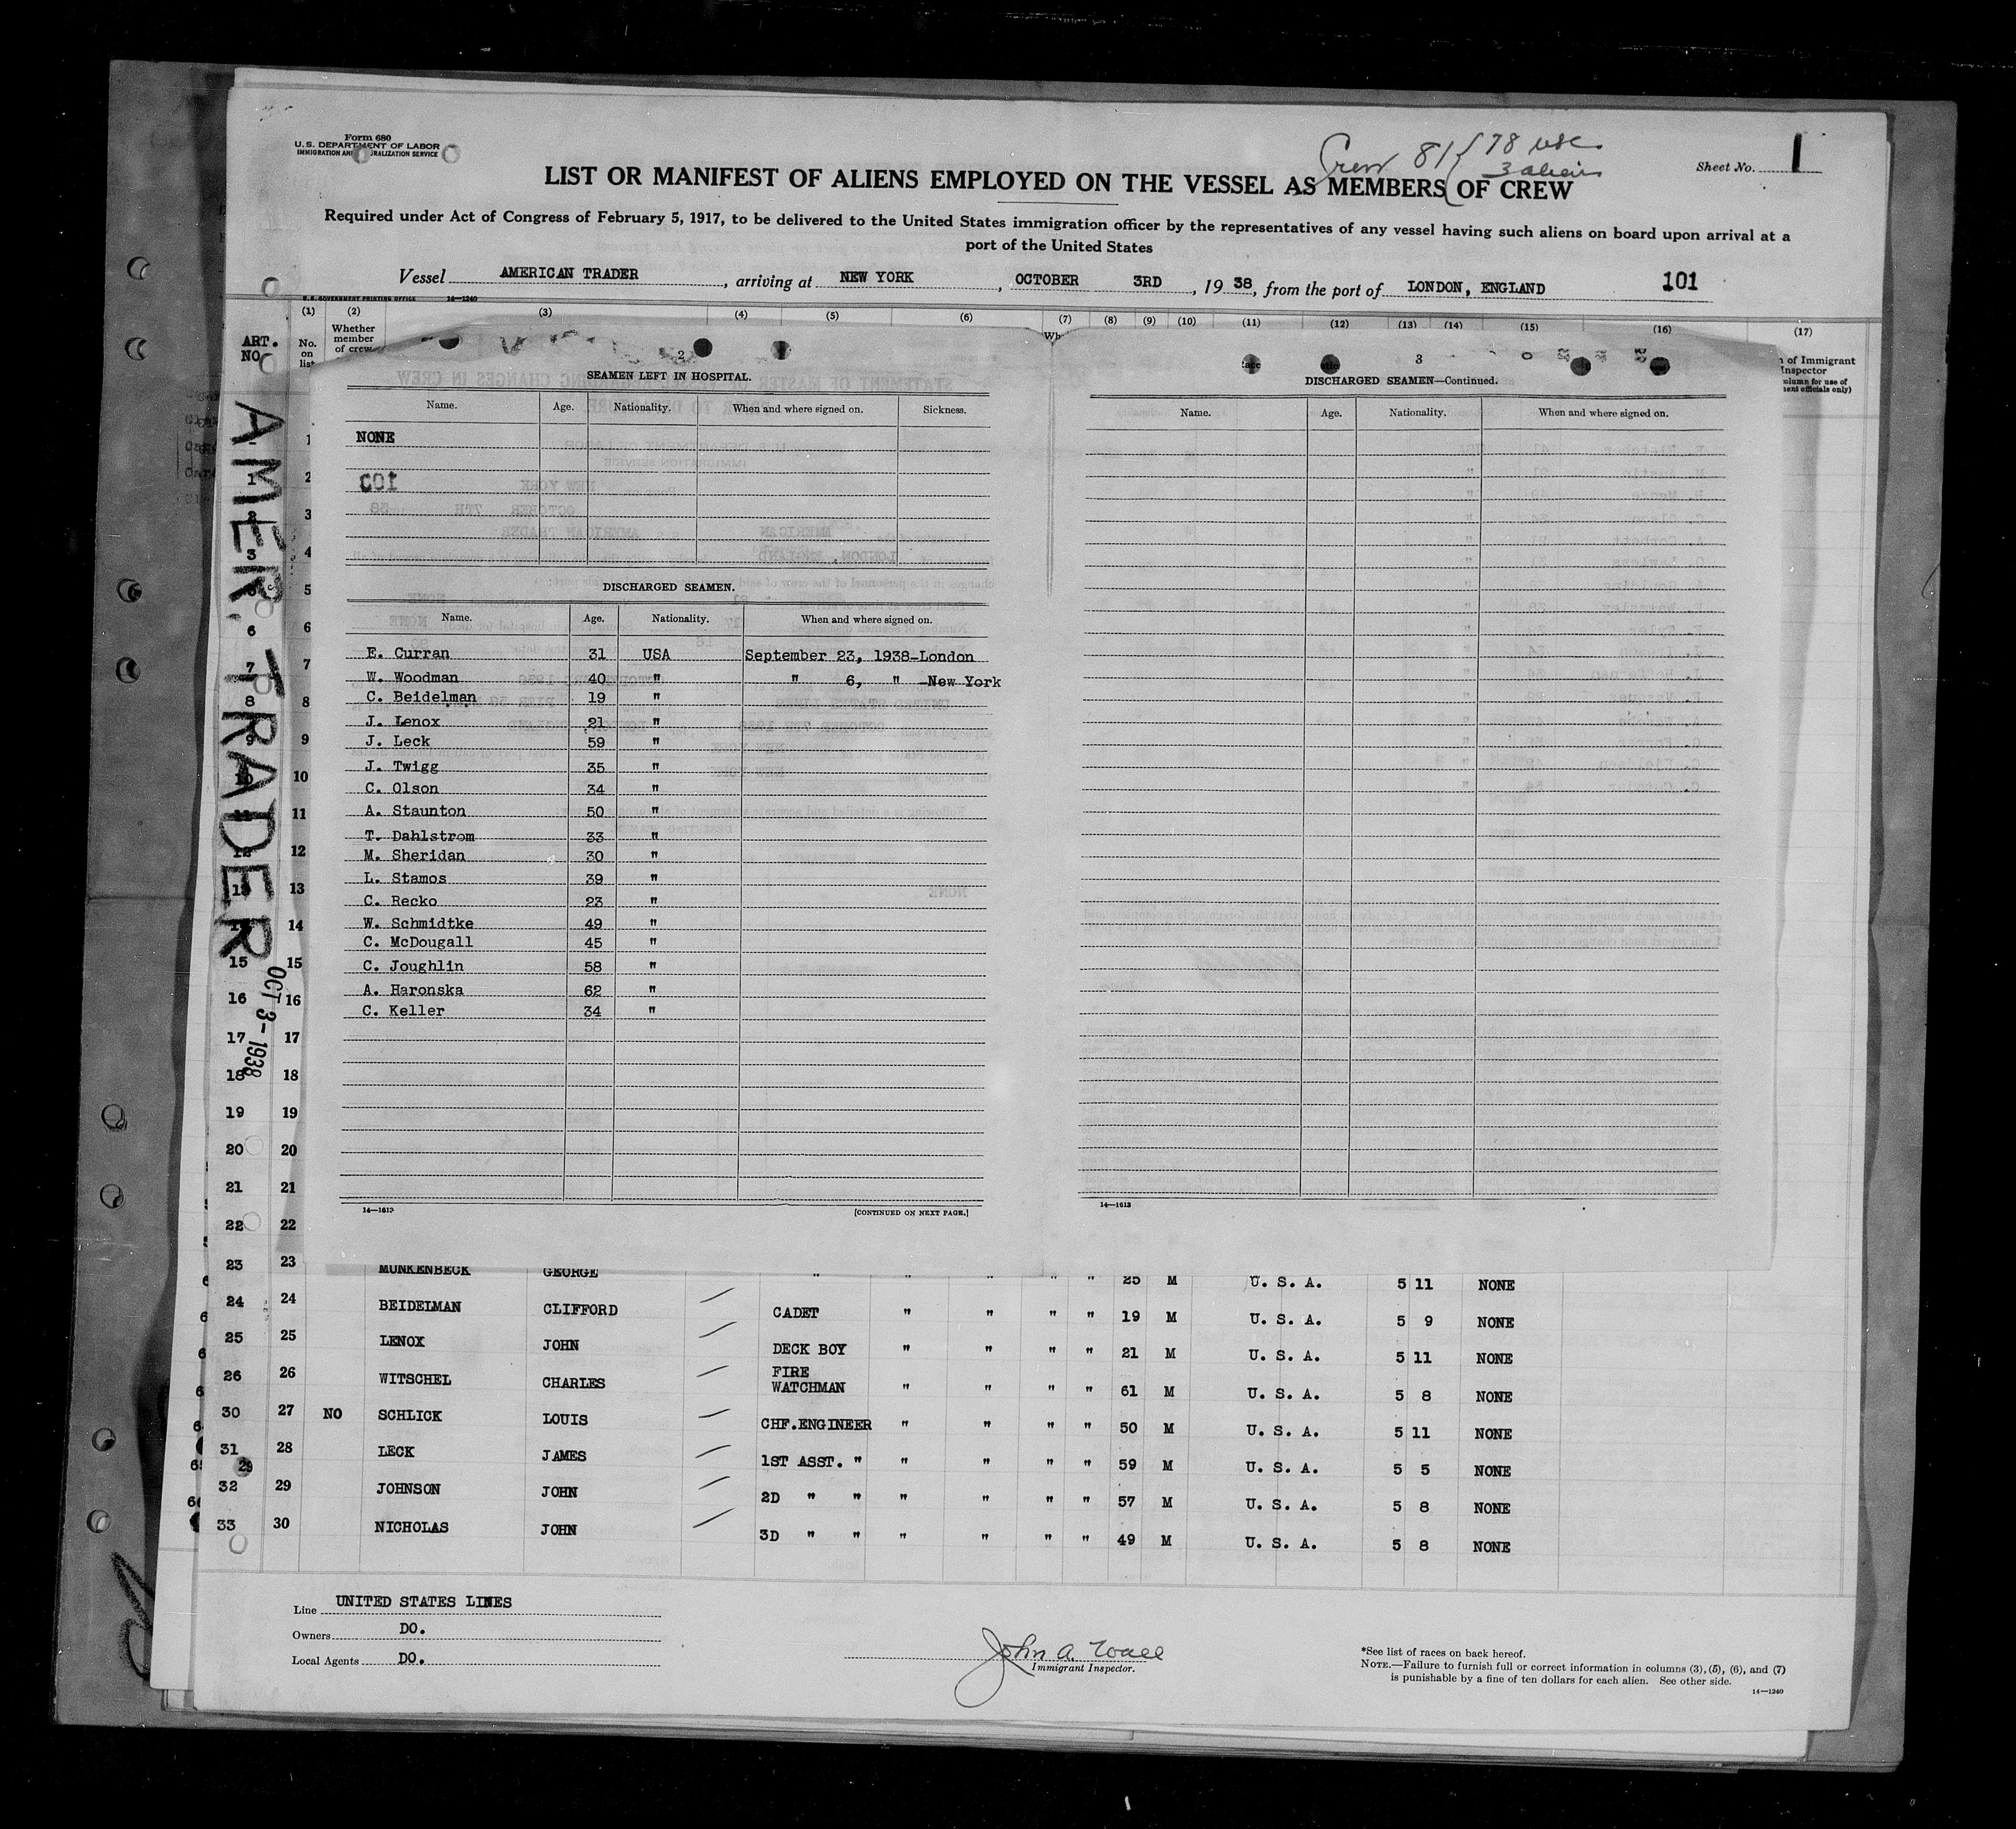 Form 680
U.S. DEPARTMENT OF LABOR
IMMIGRATION AND NATURALIZATION SERVICE
Crew 81 { 78 usc
3 aliens
Sheet No. 1
LIST OR MANIFEST OF ALIENS EMPLOYED ON THE VESSEL AS MEMBERS OF CREW
Required under Act of Congress of February 5, 1917, to be delivered to the United States immigration officer by the representatives of any vessel having such aliens on board upon arrival at a
port of the United States
Vessel AMERICAN TRADER, arriving at NEW YORK, OCTOBER 3RD, 1938, from the port of LONDON, ENGLAND 101
U.S. GOVERNMENT PRINTING OFFICE 14—1240
(1) (2) (3) (4) (5) (6) (7) (8) (9) (10) (11) (12) (13) (14) (15) (16) (17)
ART. NO.
No. on list
Whether member of crew
of Immigrant
Inspector
AMER. TRADER
OCT 3-1938
2
SEAMEN LEFT IN HOSPITAL.
Name. Age. Nationality. When and where signed on. Sickness.
NONE
DISCHARGED SEAMEN.
Name. Age. Nationality. When and where signed on.
E. Curran 31 USA September 23, 1938-London
W. Woodman 40 " " 6, " -New York
C. Beidelman 19 "
J. Lenox 21 "
J. Leck 59 "
J. Twigg 35 "
C. Olson 34 "
A. Staunton 50 "
T. Dahlstrom 33 "
M. Sheridan 30 "
L. Stamos 39 "
C. Recko 23 "
W. Schmidtke 49 "
C. McDougall 45 "
C. Joughlin 58 "
A. Haronska 62 "
C. Keller 34 "
[CONTINUED ON NEXT PAGE.]
3
DISCHARGED SEAMEN—Continued.
Name. Age. Nationality. When and where signed on.
14—1613
23 23 MUNKENBECK GEORGE " " " " " 25 M U. S. A. 5 11 NONE
24 24 BEIDELMAN CLIFFORD CADET " " " " 19 M U. S. A. 5 9 NONE
25 25 LENOX JOHN DECK BOY " " " " 21 M U. S. A. 5 11 NONE
26 26 WITSCHEL CHARLES FIRE WATCHMAN " " " " 61 M U. S. A. 5 8 NONE
30 27 NO SCHLICK LOUIS CHF.ENGINEER " " " " 50 M U. S. A. 5 11 NONE
31 28 LECK JAMES 1ST ASST. " " " " " 59 M U. S. A. 5 5 NONE
32 29 JOHNSON JOHN 2D " " " " " " 57 M U. S. A. 5 8 NONE
33 30 NICHOLAS JOHN 3D " " " " " " 49 M U. S. A. 5 8 NONE
Line UNITED STATES LINES
Owners DO.
Local Agents DO.
Immigrant Inspector.
*See list of races on back hereof.
NOTE.—Failure to furnish full or correct information in columns (3), (5), (6), and (7)
is punishable by a fine of ten dollars for each alien. See other side.
14—1240